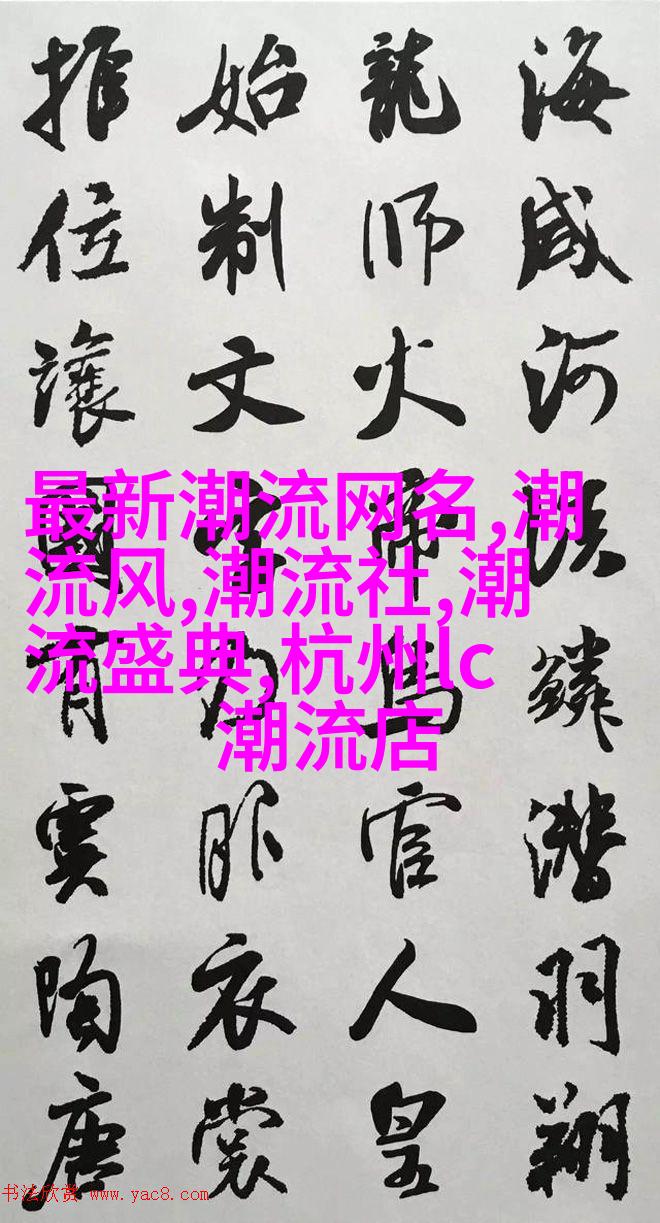 海咸河淡鳞潛羽翔
龍師火帝鳥官人皇
始制文字乃服衣裳
推位讓國有虞陶唐
最新潮流网名,潮
流风,潮流社,潮
流盛典,杭州lc
潮流店
书法欣赏 www.yac8.com